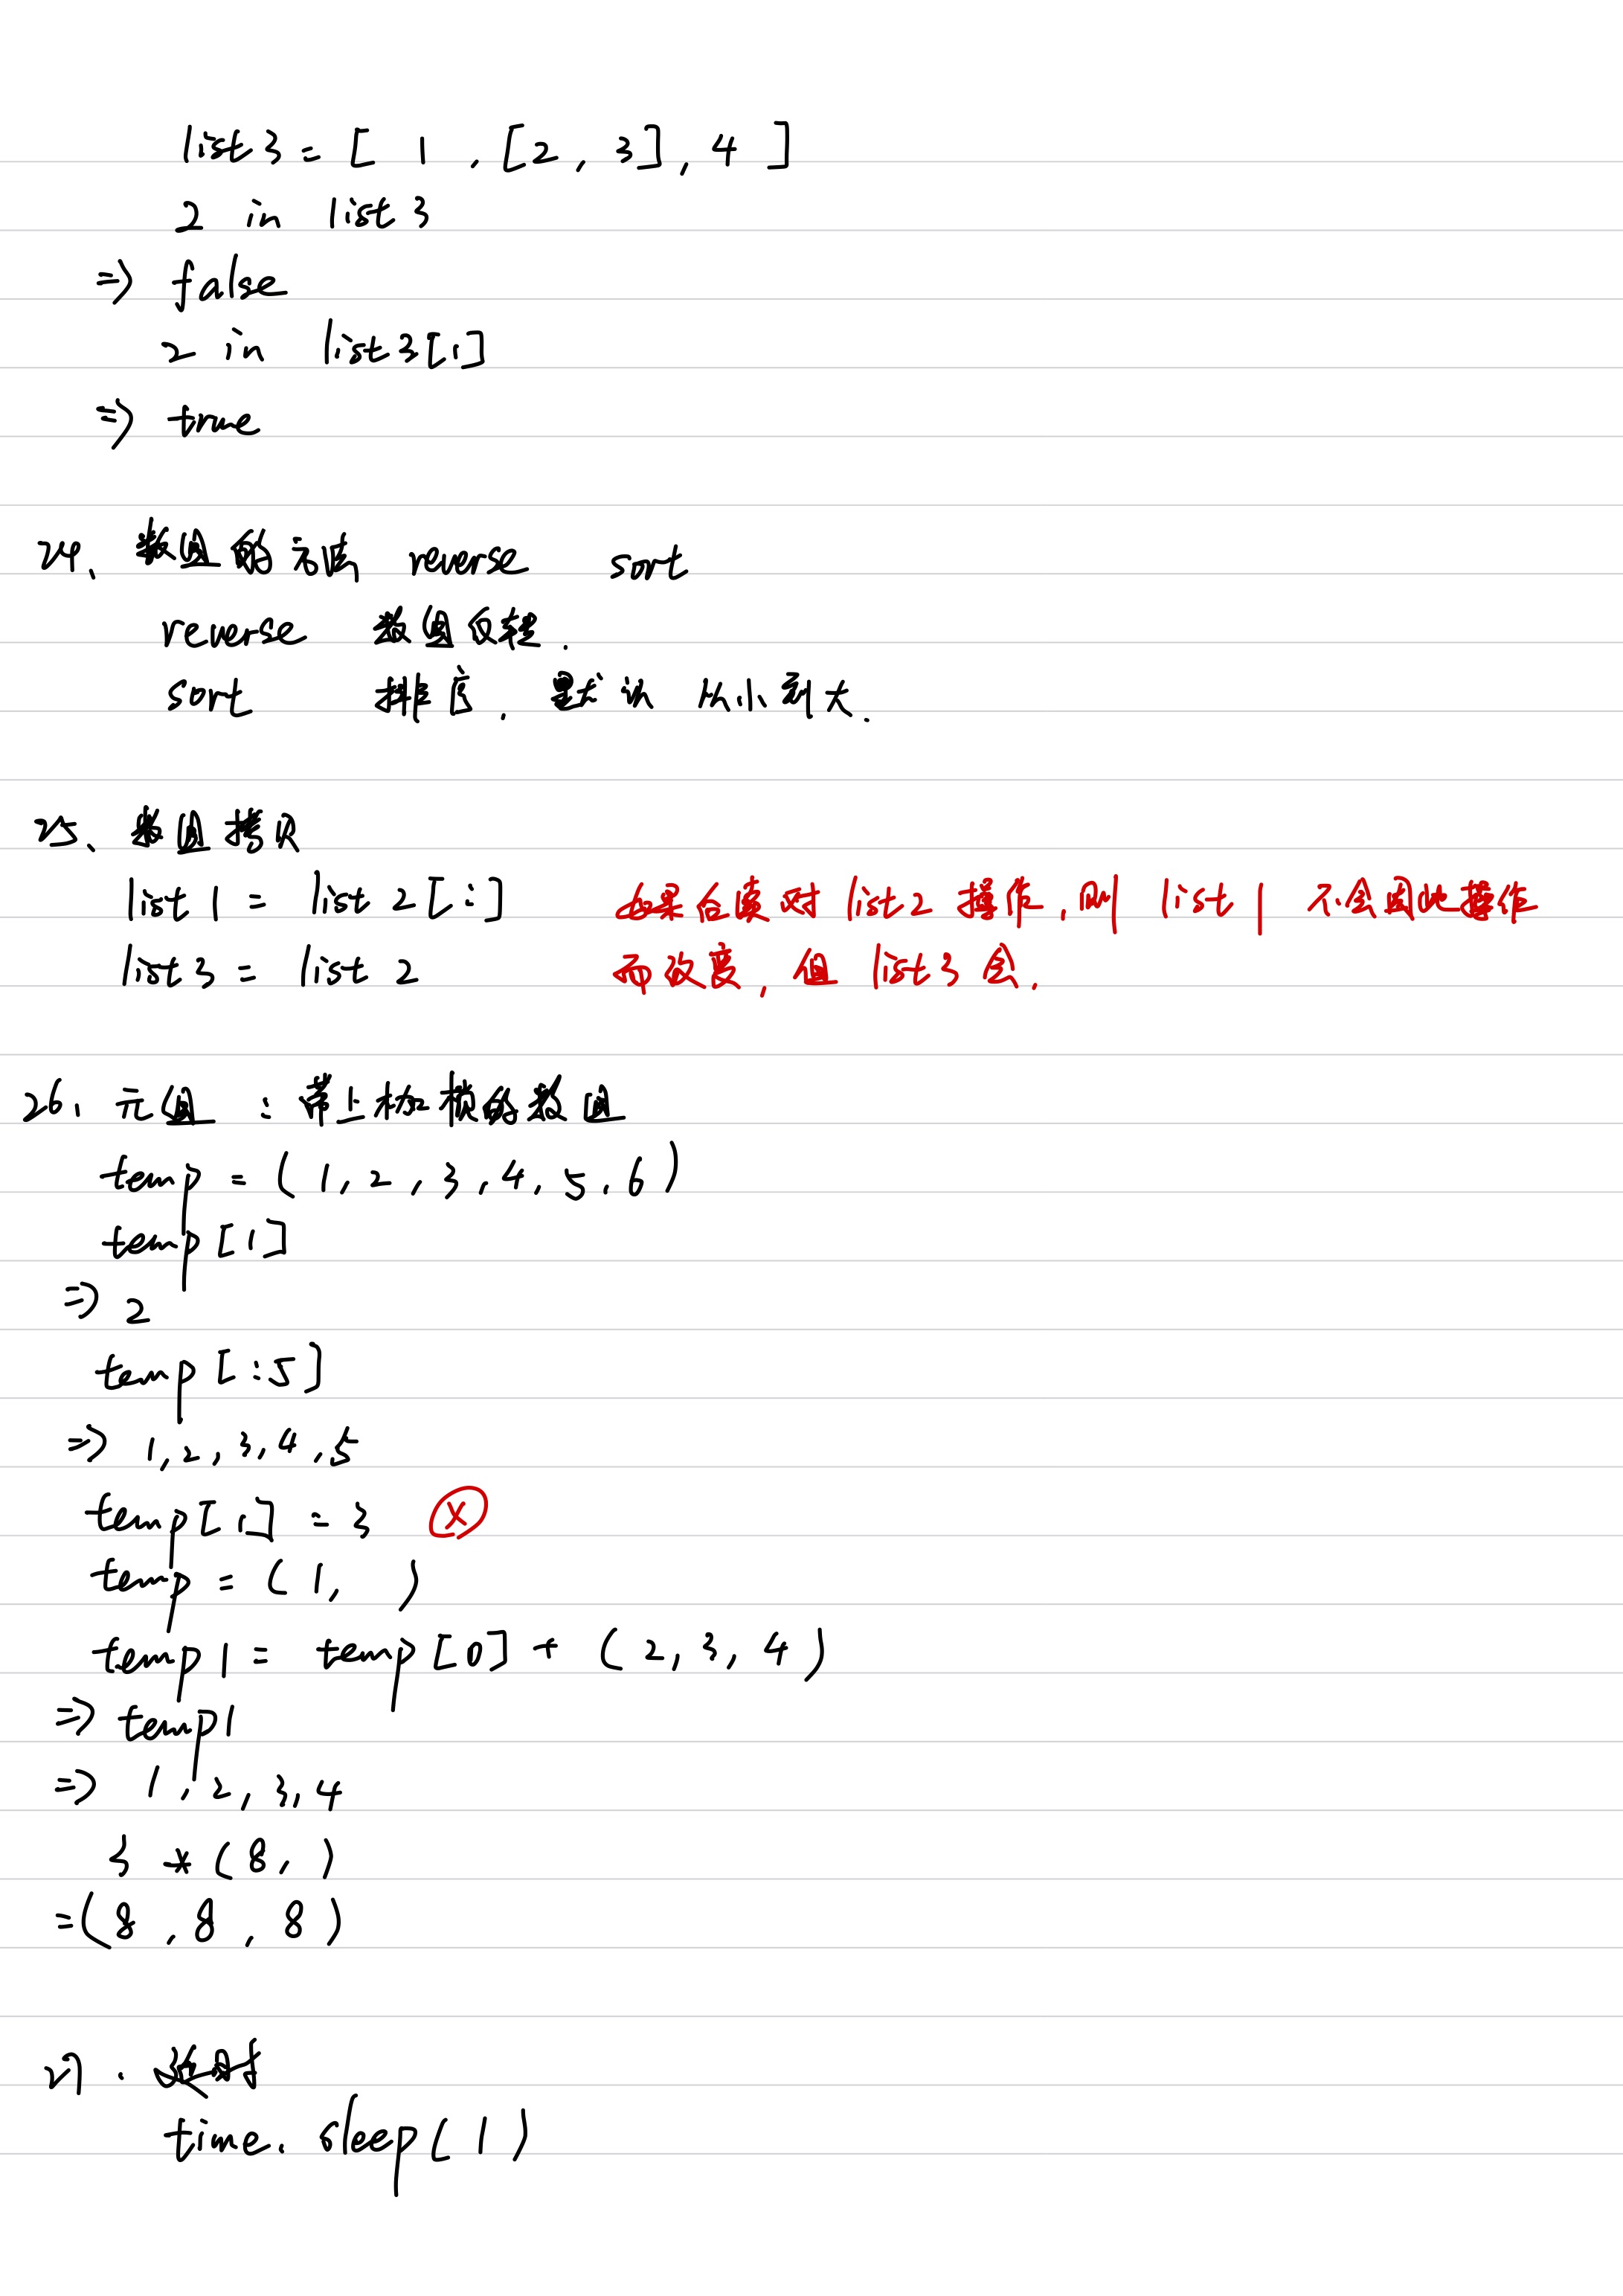 list3 = [ 1 , [2 , 3] , 4 ]
2 in list3
=> false
2 in list3[1]
=> true
24、数组的方法 reverse sort
reverse 数组反转.
sort 排序, 默认 从小到大.
25、数组拷贝
list1 = list2[:] 如果后续对list2操作,则 list1 不会因此操作
list3 = list2 而改变, 但 list3 会.
26、元组 : 带上枷锁的数组
temp = ( 1, 2 , 3 , 4, 5, 6 )
temp[1]
=> 2
temp[:5]
=> 1, 2 , 3, 4 , 5
temp[1] = 3 ⓧ
temp = ( 1, )
temp1 = temp[0] + ( 2, 3, 4 )
=> temp1
=> 1, 2, 3, 4
3 * (8, )
=(8 , 8 , 8 )
27. 延时
time. sleep( 1 )